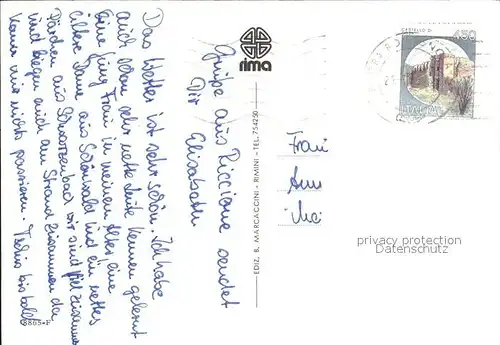 Grüße aus Riccione sendet
Dir Elisabeth
Das Wetter ist sehr schön. Ich habe
auch schon sehr nette Leute kennen gelernt
Eine jung Frau in meinem Alter eine
ältere Dame aus Schönwald und ein nettes
Pärchen aus Schwarzenbach wir sind viel zusammen
und liegen auch am Strand zusammen da
kann mir nichts passieren. bis bald
rima
EDIZ. B. MARCACCINI - RIMINI - TEL. 754250
CASTELLO DI
450
Frau
privacy protection
Datenschutz